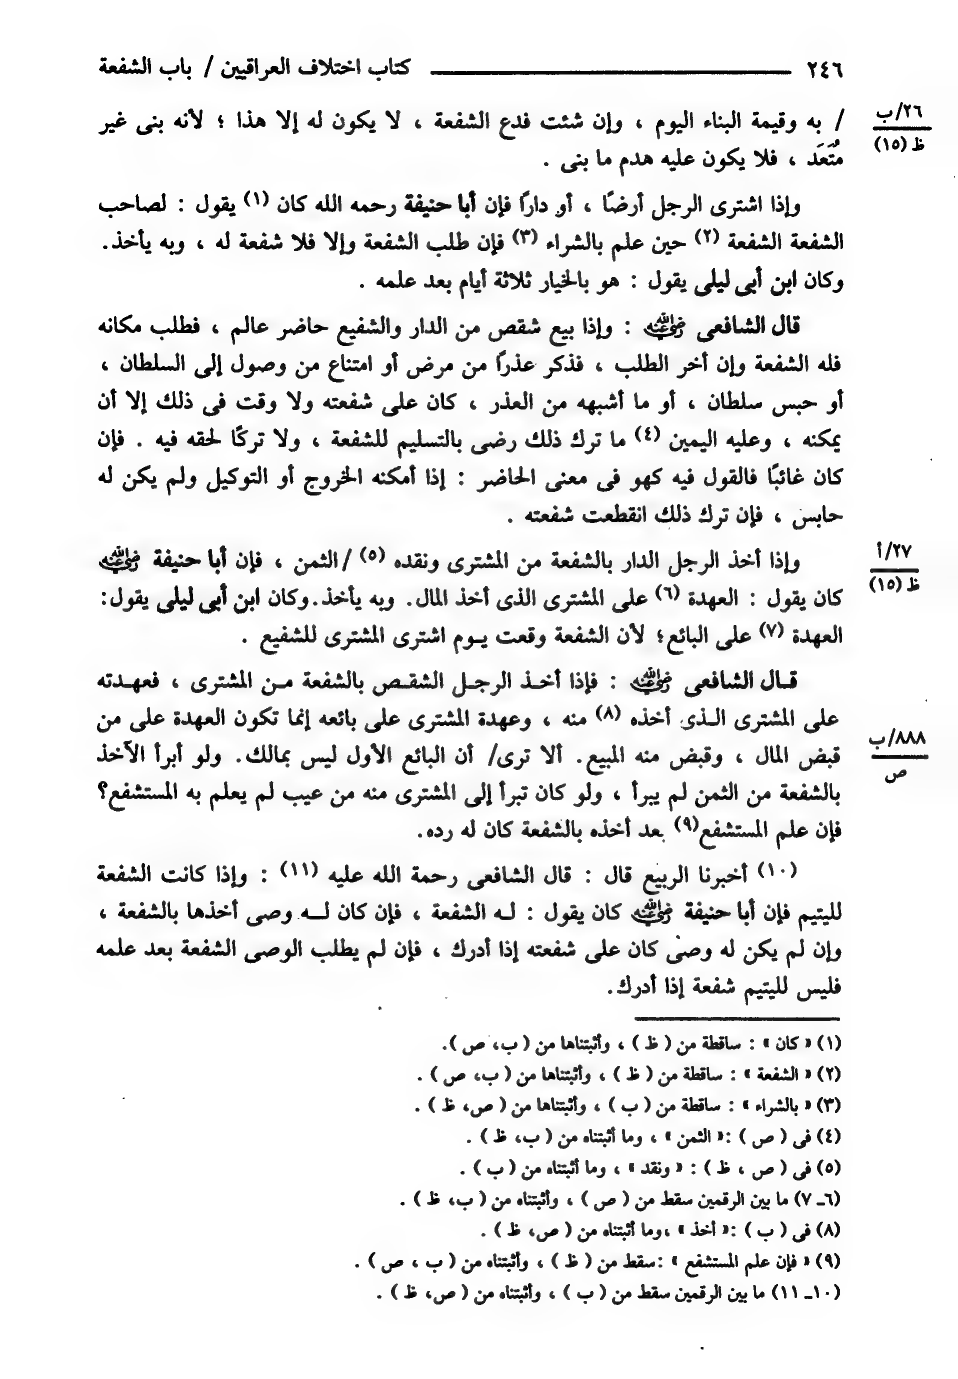 ٢٤٦ كتاب اختلاف العراقيين / باب الشفعة
٢٦/ب
ظ (١٥)
/ به وقيمة البناء اليوم ، وإن شئت فدع الشفعة ، لا يكون له إلا هذا ؛ لأنه بنى غير
مُتَعَد ، فلا يكون عليه هدم ما بنى .
وإذا اشترى الرجل أرضًا ، أو دارًا فإن أبا حنيفة رحمه الله كان (١) يقول : لصاحب
الشفعة الشفعة (٢) حين علم بالشراء (٣) فإن طلب الشفعة وإلا فلا شفعة له ، وبه يأخذ.
وكان ابن أبى ليلى يقول : هو بالخيار ثلاثة أيام بعد علمه .
قال الشافعى رضي الله عنه : وإذا بيع شقص من الدار والشفيع حاضر عالم ، فطلب مكانه
فله الشفعة وإن أخر الطلب ، فذكر عذرًا من مرض أو امتناع من وصول إلى السلطان ،
أو حبس سلطان ، أو ما أشبهه من العذر ، كان على شفعته ولا وقت فى ذلك إلا أن
يمكنه ، وعليه اليمين (٤) ما ترك ذلك رضى بالتسليم للشفعة ، ولا تركًا لحقه فيه . فإن
كان غائبًا فالقول فيه كهو فى معنى الحاضر : إذا أمكنه الخروج أو التوكيل ولم يكن له
حابس ، فإن ترك ذلك انقطعت شفعته .
٢٧/أ
ظ (١٥)
وإذا أخذ الرجل الدار بالشفعة من المشترى ونقده (٥) /الثمن ، فإن أبا حنيفة رضي الله عنه
كان يقول : العهدة (٦) على المشترى الذى أخذ المال. وبه يأخذ.وكان ابن أبى ليلى يقول:
العهدة (٧) على البائع؛ لأن الشفعة وقعت يـوم اشترى المشترى للشفيع .
قـال الشافعى رضي الله عنه : فإذا أخـذ الرجـل الشقـص بالشفعة مـن المشترى ، فعهـدته
على المشترى الـذى أخذه (٨) منه ، وعهدة المشترى على بائعه إنما تكون العهدة على من
٨٨٨/ب
ص
قبض المال ، وقبض منه المبيع. ألا ترى/ أن البائع الأول ليس بمالك. ولو أبرأ الآخذ
بالشفعة من الثمن لم يبرأ ، ولو كان تبرأ إلى المشترى منه من عيب لم يعلم به المستشفع؟
فإن علم المستشفع(٩) بعد أخذه بالشفعة كان له رده.
(١٠) أخبرنا الربيع قال : قال الشافعى رحمة الله عليه (١١) : وإذا كانت الشفعة
لليتيم فإن أبا حنيفة رضي الله عنه كان يقول : لـه الشفعة ، فإن كان لـه وصى أخذها بالشفعة ،
وإن لم يكن له وصى كان على شفعته إذا أدرك ، فإن لم يطلب الوصى الشفعة بعد علمه
فليس لليتيم شفعة إذا أدرك.
(١) « كان » : ساقطة من ( ظ ) ، وأثبتناها من ( ب، ص ).
(٢) « الشفعة » : ساقطة من ( ظ ) ، وأثبتناها من ( ب، ص ) .
(٣) « بالشراء » : ساقطة من ( ب ) ، وأثبتناها من ( ص، ظ ) .
(٤) فى ( ص ) :« الثمن » ، وما أثبتناه من ( ب، ظ ) .
(٥) فى ( ص ، ظ ) : « ونقد » ، وما أثبتناه من ( ب ) .
(٦ـ ٧) ما بين الرقمين سقط من ( ص ) ، وأثبتناه من ( ب، ظ ) .
(٨) فى ( ب ) :« أخذ » ،وما أثبتناه من ( ص، ظ ) .
(٩) « فإن علم المستشفع » :سقط من ( ظ ) ، وأثبتناه من ( ب ، ص ) .
(١٠ـ ١١) ما بين الرقمين سقط من ( ب ) ، وأثبتناه من ( ص، ظ ) .